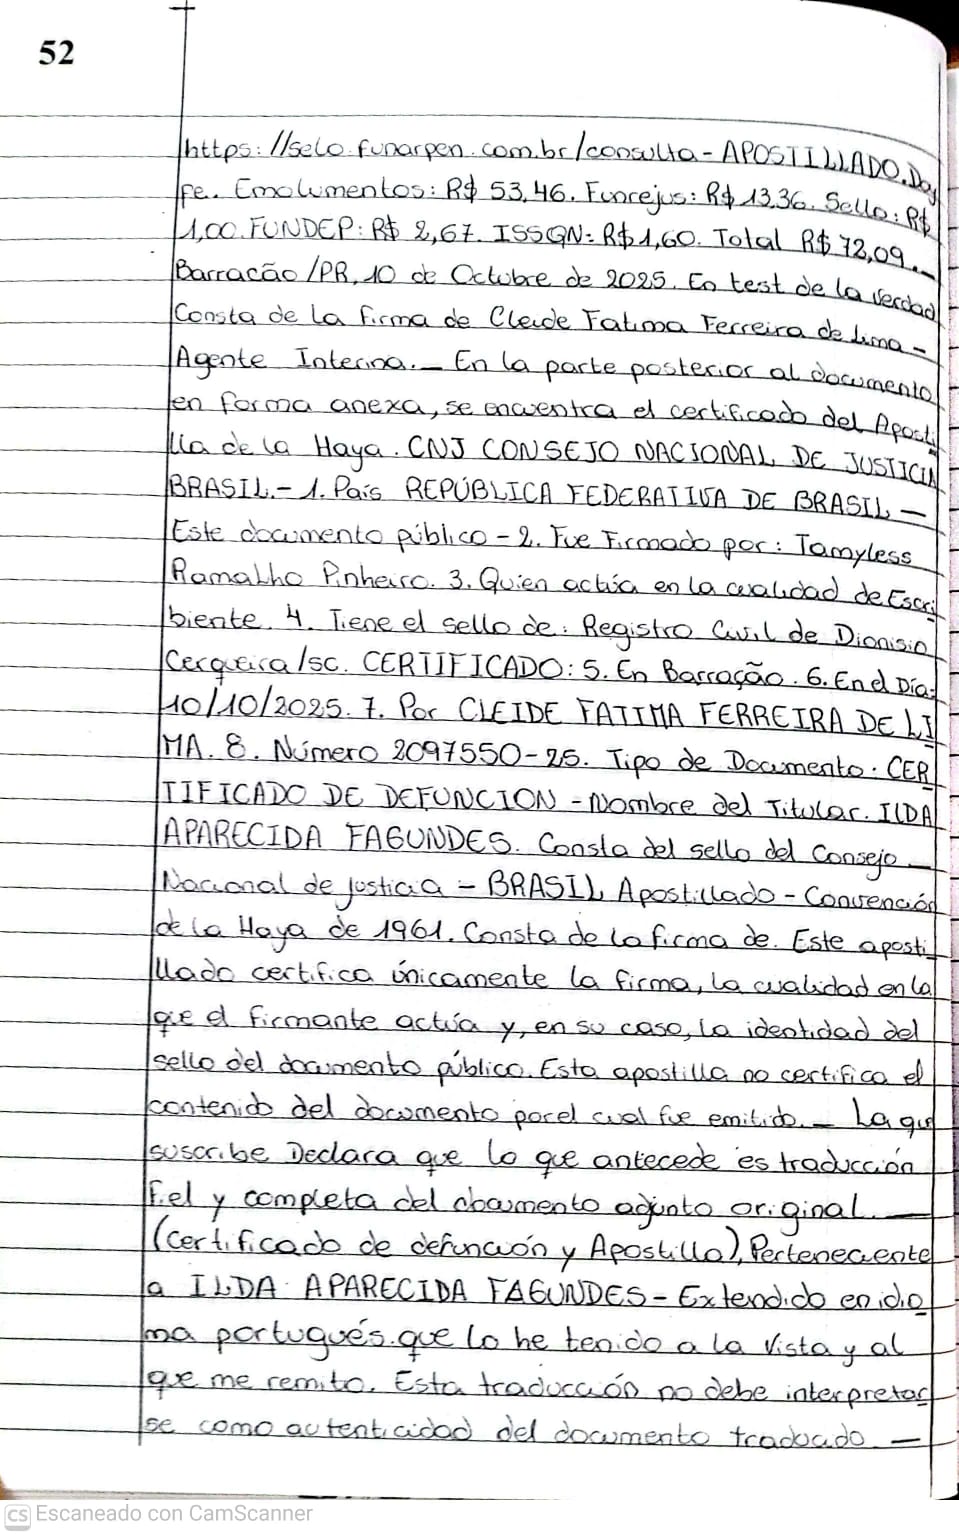 52
https://selo.funarpen.com.br/consulta - APOSTILLADO. Doy
fe. Emolumentos: R$ 53,46. Funrejus: R$ 13,36. Sello: R$
1,00. FUNDEP: R$ 2,67. ISSQN: R$ 1,60. Total R$ 72,09.-
Barracão/PR, 10 de Octubre de 2025. En test de la verdad
Consta de la firma de Cleide Fatima Ferreira de Lima -
Agente Interina.- En la parte posterior al documento
en forma anexa, se encuentra el certificado del Aposti
lla de la Haya. CNJ CONSEJO NACIONAL DE JUSTICIA
BRASIL.- 1. País REPÚBLICA FEDERATIVA DE BRASIL -
Este documento público - 2. Fue Firmado por: Tamyless
Ramalho Pinheiro. 3. Quien actúa en la cualidad de Escri
biente. 4. Tiene el sello de: Registro Civil de Dionisio
Cerqueira/SC. CERTIFICADO: 5. En Barração. 6. En el Día:
10/10/2025. 7. Por CLEIDE FATIMA FERREIRA DE LI
MA. 8. Número 2097550-25. Tipo de Documento. CER
TIFICADO DE DEFUNCION - Nombre del Titular. ILDA
APARECIDA FAGUNDES. Consta del sello del Consejo -
Nacional de Justicia - BRASIL Apostillado - Convención
de la Haya de 1961. Consta de la firma de. Este aposti
llado certifica únicamente la firma, la cualidad en la
que el firmante actúa y, en su caso, la identidad del
sello del documento público. Esta apostilla no certifica el
contenido del documento por el cual fue emitido. - La que
suscribe Declara que lo que antecede es traducción
fiel y completa del documento adjunto original. -
(certificado de defunción y Apostilla), Perteneciente
a ILDA APARECIDA FAGUNDES - Extendido en idio
ma portugués. que lo he tenido a la vista y al
que me remito. Esta traducción no debe interpretar
se como autenticidad del documento traducido -
CS Escaneado con CamScanner